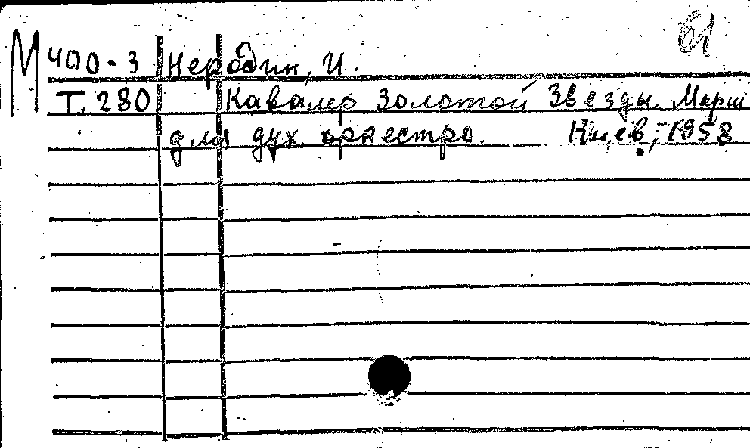 61
М 400-3 Неродин, И.
Т. 280 Кавалер Золотой Звезды. Марш
для дух. оркестра. Киев, 1958